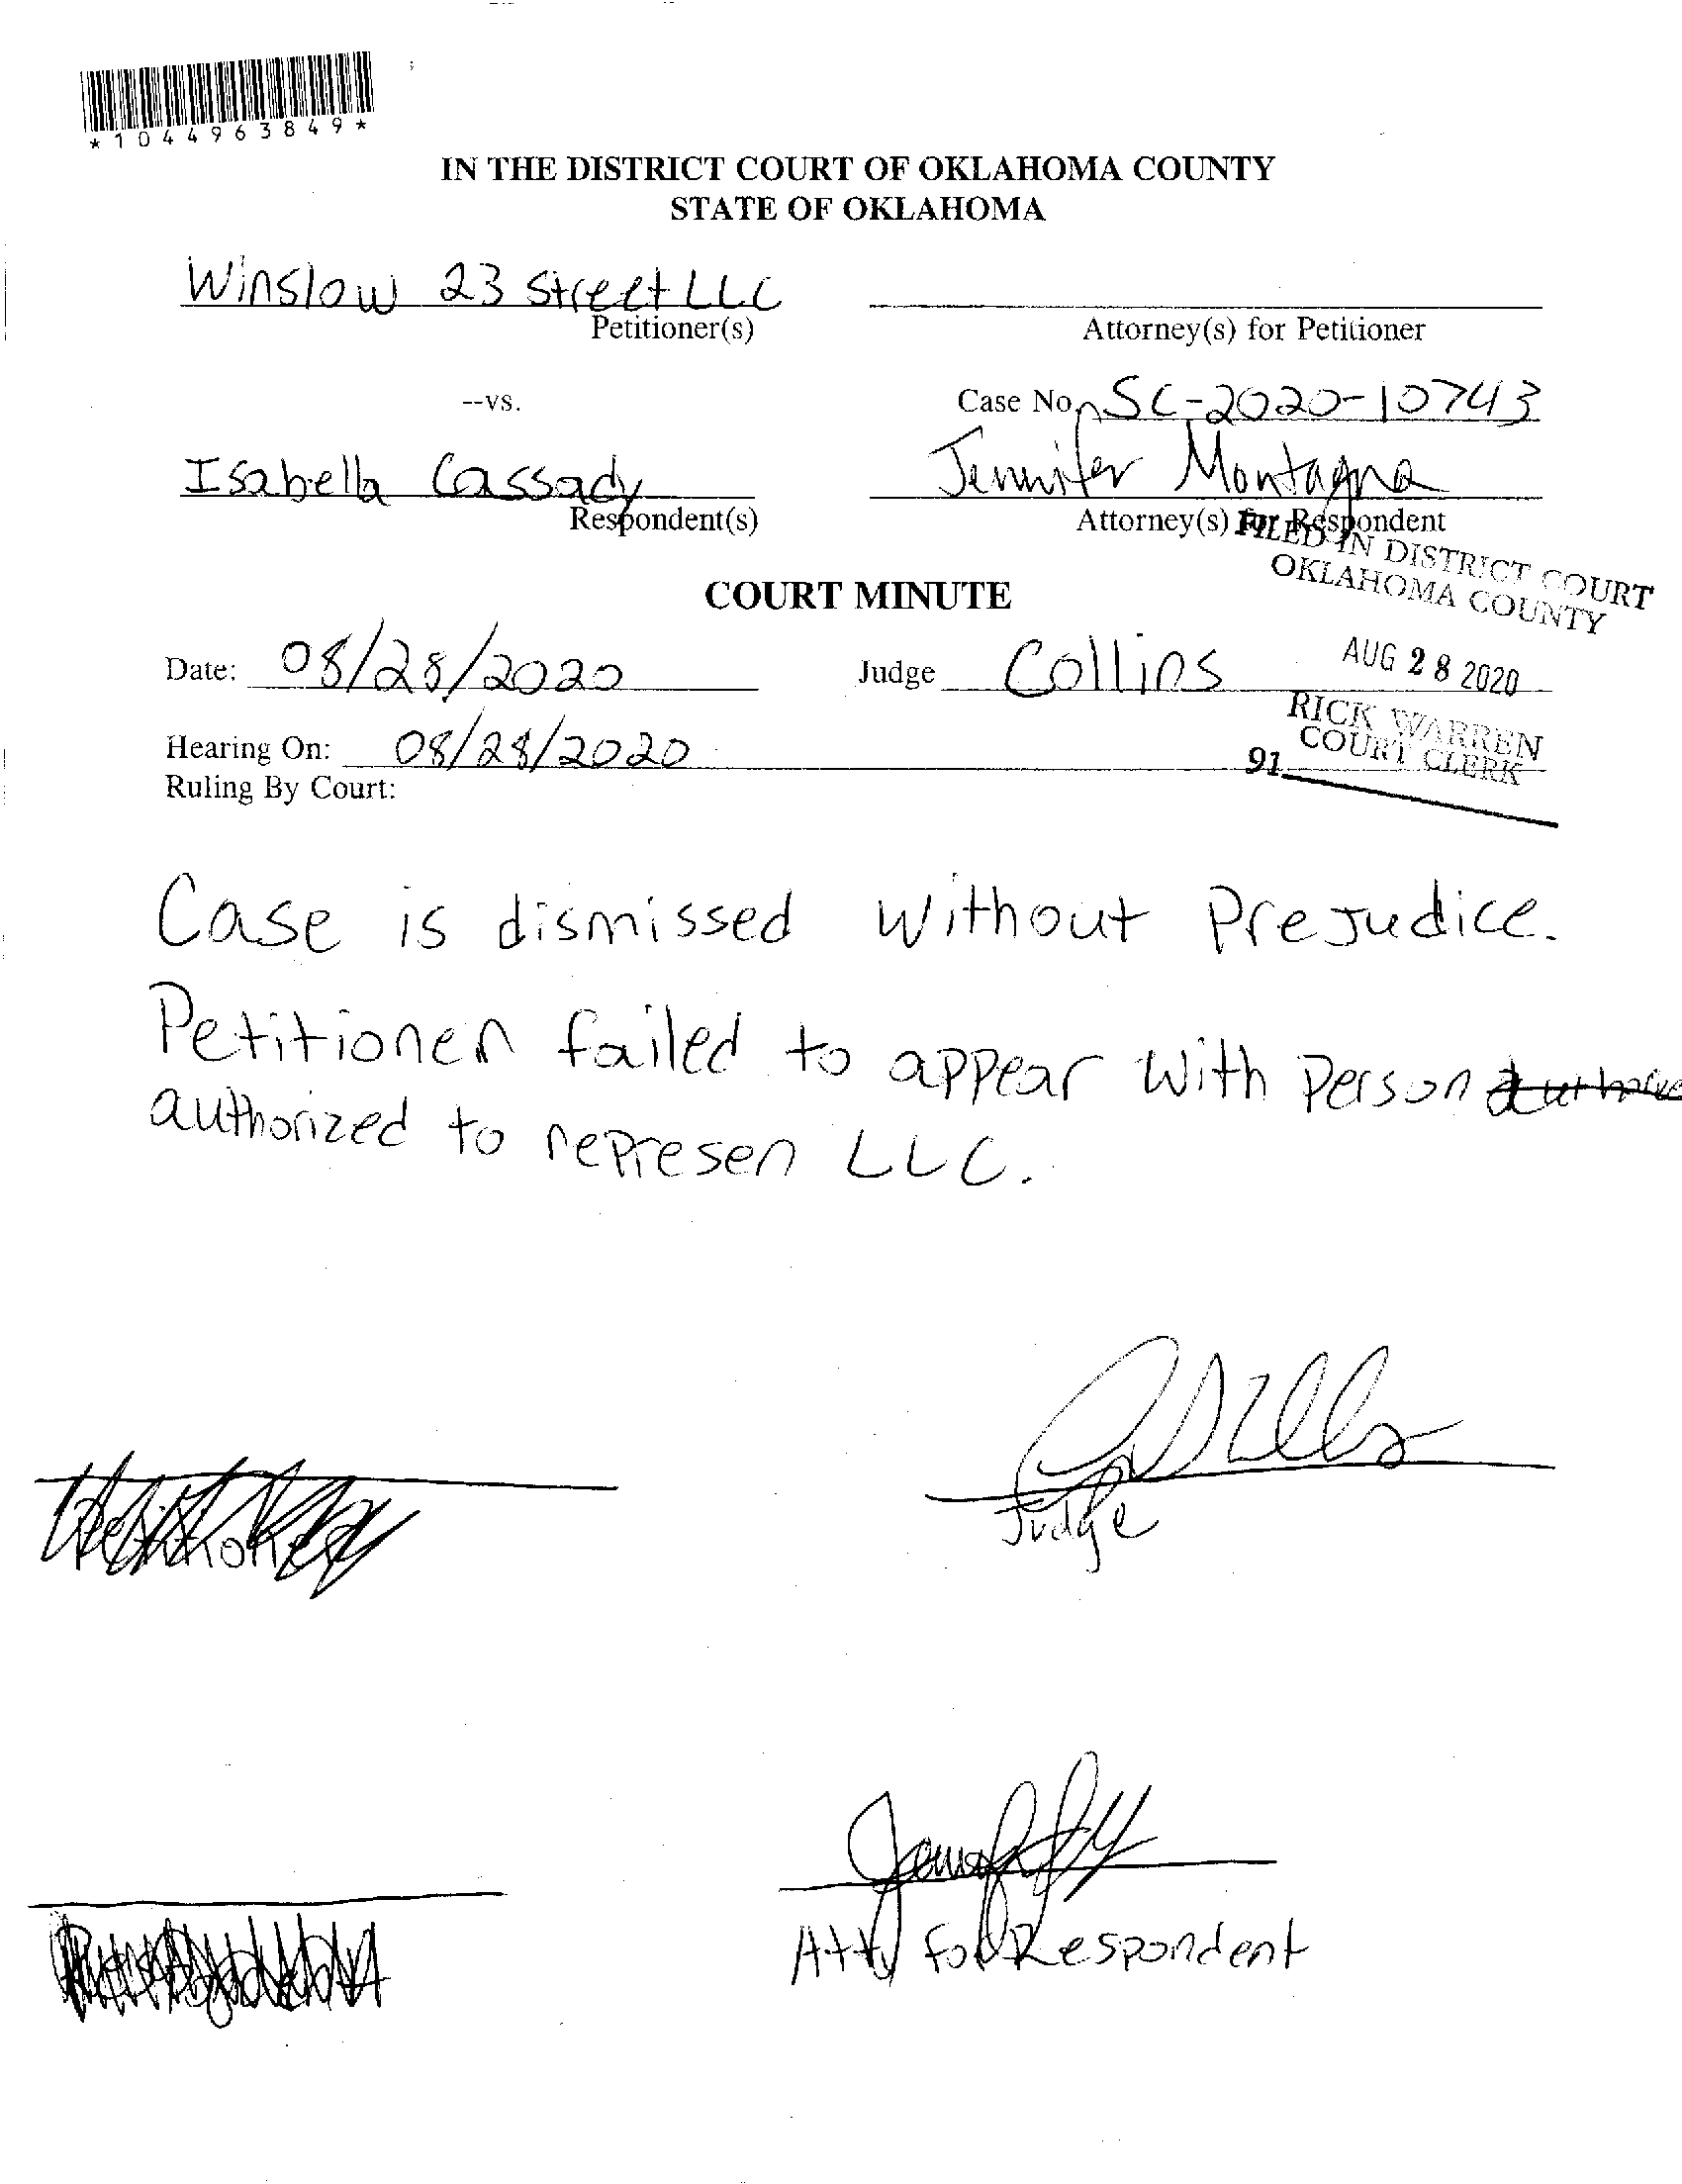 *1044963849*
IN THE DISTRICT COURT OF OKLAHOMA COUNTY
STATE OF OKLAHOMA
Winslow 23 Street LLC
Petitioner(s)
Attorney(s) for Petitioner
--vs.
Case No. SC-2020-10743
Isabella Cassady
Respondent(s)
Jennifer Montagna
Attorney(s) for Respondent
FILED IN DISTRICT COURT
OKLAHOMA COUNTY
COURT MINUTE
Date: 08/28/2020
Judge Collins
AUG 28 2020
RICK WARREN
COURT CLERK
91
Hearing On: 08/28/2020
Ruling By Court:
Case is dismissed without Prejudice.
Petitioner failed to appear with Person
authorized to represen LLC.
Judge
Atty for Respondent